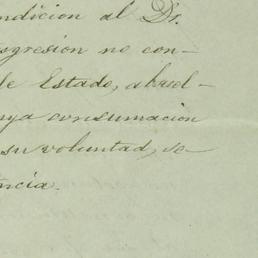 ndicion al Dr.
sgresion no con-
de Estado, absol-
uya consumacion
su voluntad, se-
ncia.